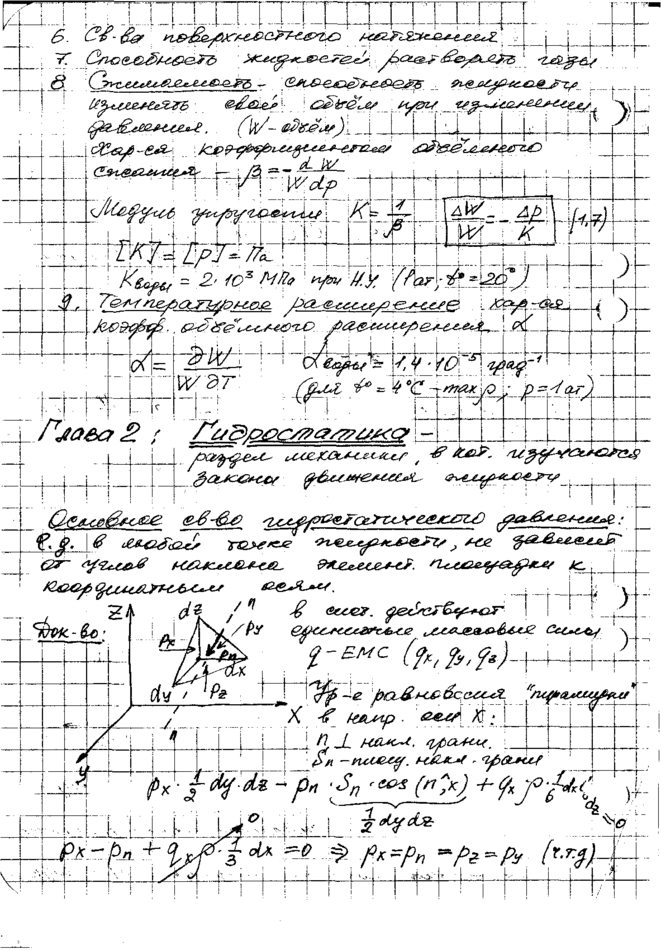 6. Св-ва поверхностного натяжения
7. Способность жидкостей растворять газы
8 Сжимаемость – способность жидкости
изменять свой объём при изменении
давления. (W – объём)
Хар-ся коэффициентом объёмного
сжатия – β = – dW / W dp
Модуль упругости K = 1/β ΔW/W = – Δp/K (1,7)
[K] = [p] = Па
Kводы = 2·10³ МПа при Н.У. (1ат; t° = 20°)
9. Температурное расширение хар-ся
коэфф. объёмного расширения α
α = ∂W / W ∂T αводы = 1,4·10⁻⁵ град⁻¹
(для t° = 4°C – max ρ; p = 1 ат)
Глава 2: Гидростатика –
раздел механики, в кот. изучаются
законы движения жидкости
Основное св-во гидростатического давления:
Г.д. в любой точке жидкости, не зависит
от углов наклона элемент. площадки к
координатным осям.
Док-во:
Z dz n
Px Py
Pn
dx
dy Pz
X
n
У
в сист. действуют
единичные массовые силы
q – ЕМС (qx, qy, qz)
Ур-е равновесия "пирамидки"
в напр. оси X:
n ⊥ накл. грани.
Sn – площ. накл. грани
px · 1/2 dy·dz – pn · Sn · cos(n^,x) + qx · ρ · 1/6 dx dy dz = 0
1/2 dy dz
0
px – pn + qx ρ · 1/3 dx = 0 ⇒ px = pn = pz = py (ч.т.д)